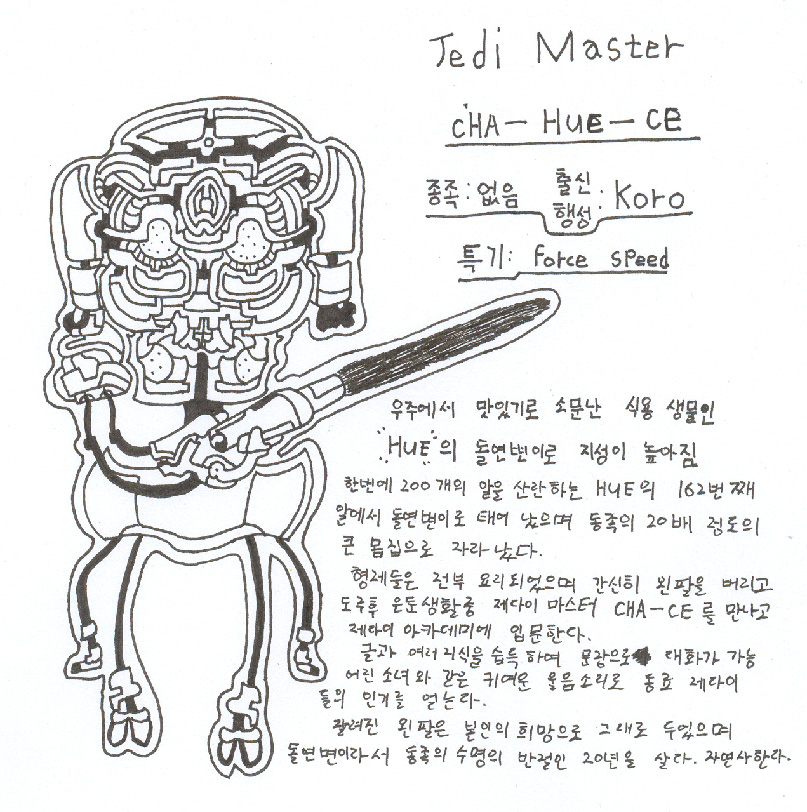 Jedi Master
CHA-HUE-CE
종족: 없음 출신행성: Koro
특기: force speed
우주에서 맛있기로 소문난 식용 생물인
"HUE"의 돌연변이로 지성이 높아짐
한번에 200개의 알을 산란하는 HUE의 162번째
알에서 돌연변이로 태어 났으며 동족의 20배 정도의
큰 몸집으로 자라났다.
형제들은 전부 요리되었으며 간신히 왼팔을 버리고
도주후 은둔생활중 제다이 마스터 CHA-CE를 만나고
제다이 아카데미에 입문한다.
글과 여러지식을 습득하며 문장으로 대화가 가능
어린 소녀와 같은 귀여운 울음소리로 동료 제다이
들의 인기를 얻는다.
잘려진 왼팔은 본인의 희망으로 그대로 두었으며
돌연변이라서 동족의 수명의 반절인 20년을 살다. 자연사한다.